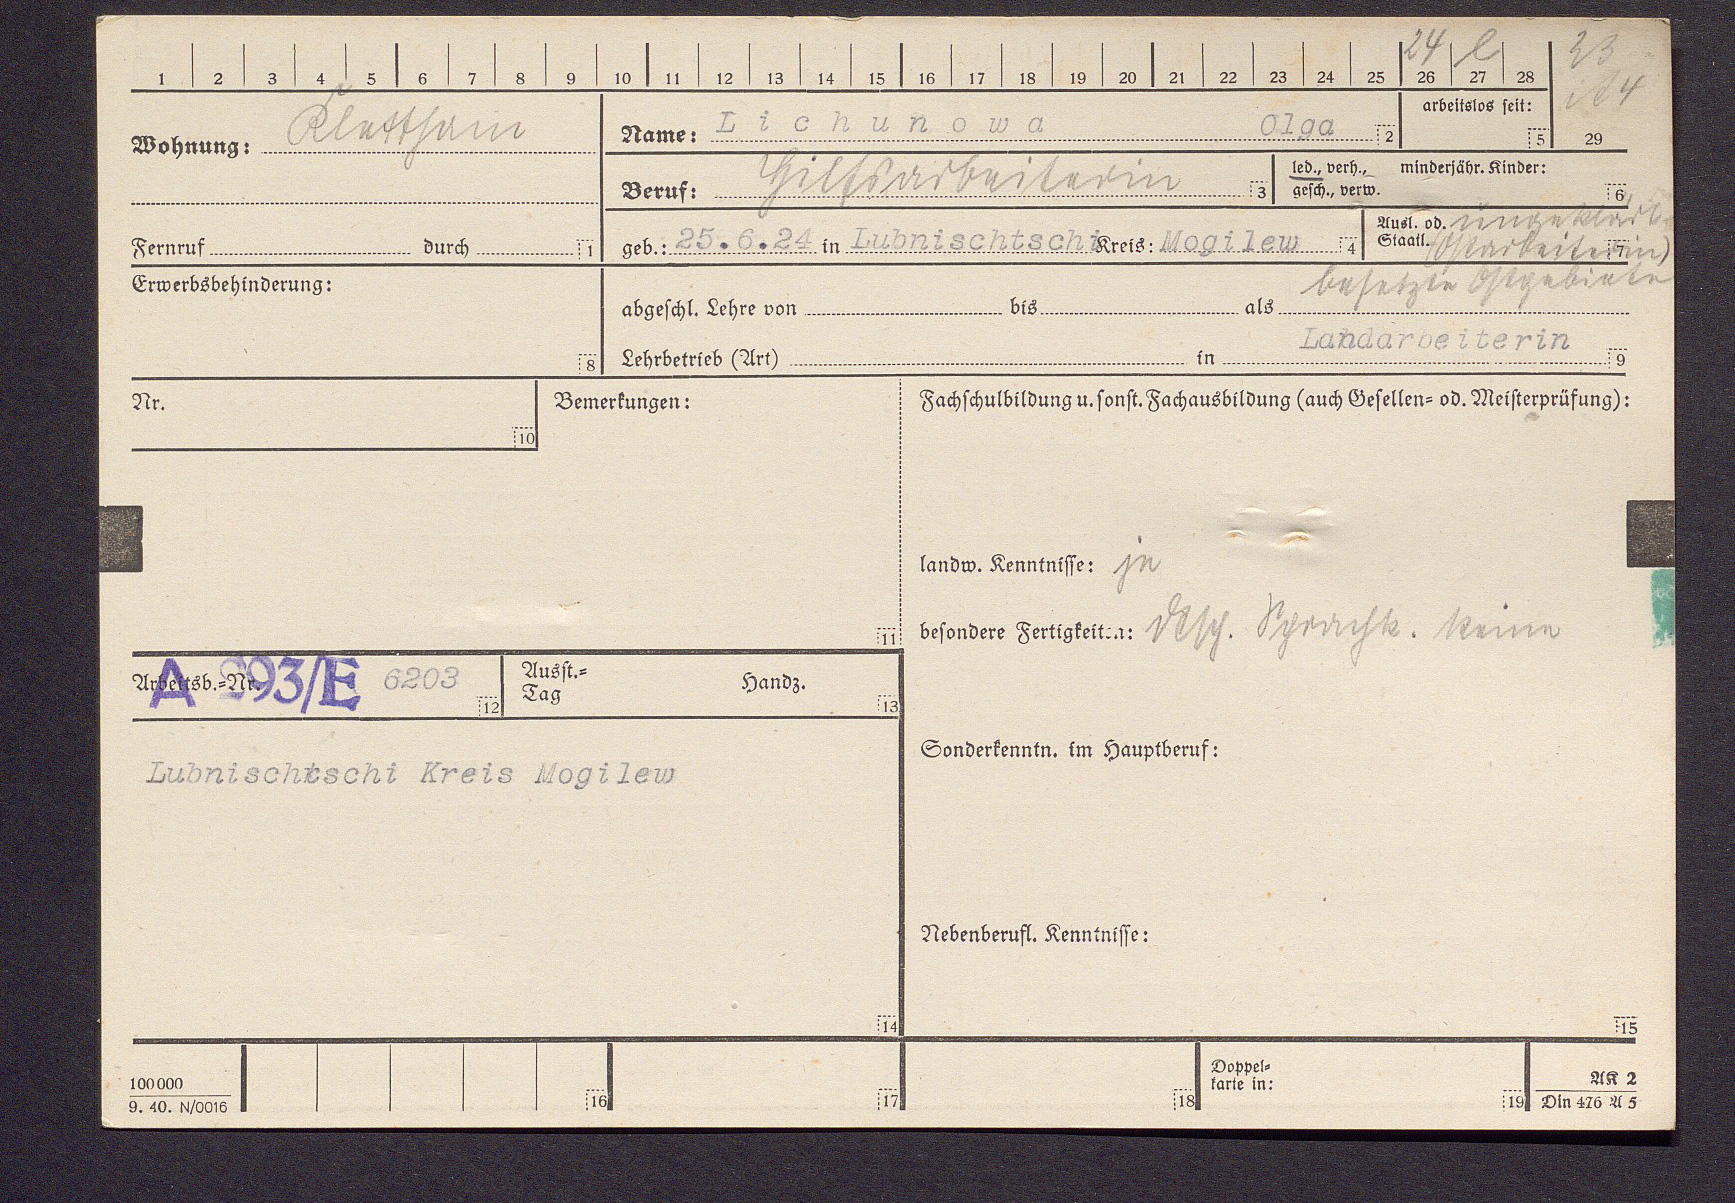 1 2 3 4 5 6 7 8 9 10 11 12 13 14 15 16 17 18 19 20 21 22 23 24 25 26 27 28 29
24 33
Wohnung: Klettham
Name: Lichunowa Olga 2
arbeitslos seit: 5
Beruf: Hilfsarbeiterin 3
led., verh., minderjähr. Kinder:
gesch., verw. 6
Fernruf durch 1
geb.: 25.6.24 in Lubnischtschi Kreis: Mogilew 4
Ausl. od. Staatl. ungeklärt 7
(Ostarbeiterin)
besetzte Ostgebiete
Erwerbsbehinderung: 8
abgeschl. Lehre von bis als
Landarbeiterin
Lehrbetrieb (Art) in 9
Nr. 10
Bemerkungen: 11
Fachschulbildung u. sonst. Fachausbildung (auch Gesellen- od. Meisterprüfung):
landw. Kenntnisse: ja
besondere Fertigkeiten: dtsch. Sprachk. keine
Arbeitsb.-Nr. A 293/E 6203 12
Ausst.-Tag Handz. 13
Lubnischtschi Kreis Mogilew
14
Sonderkenntn. im Hauptberuf:
Nebenberufl. Kenntnisse:
15
100000
9. 40. N/0016
16 17 18
Doppel-
karte in: 19
AK 2
Din 476 A 5